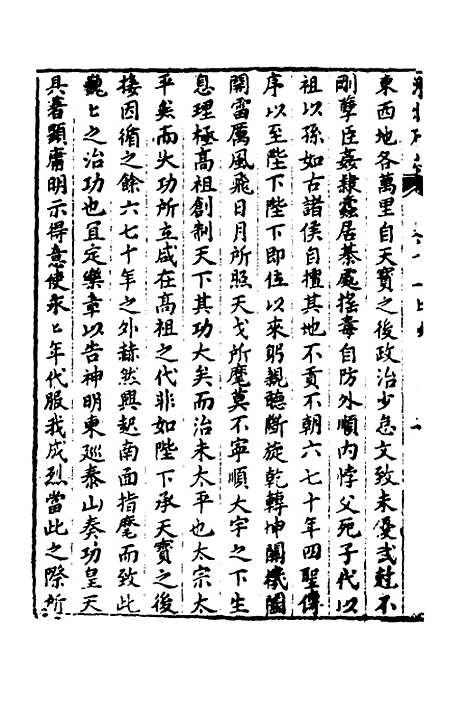 東西地各萬里自天寶之後政治少怠文致未優武尅不
剛孽臣姦隸蠹居棊處搖毒自防外順內悖父死子代以
祖以孫如古諸侯自擅其地不貢不朝六七十年四聖傳
序以至陛下陛下即位以來躬親聽斷旋乾轉坤關機闔
開雷厲風飛日月所照天戈所麾莫不寧順大宇之下生
息理極高祖創制天下其功大矣而治未太平也太宗太
平矣而大功所立咸在高祖之代非如陛下承天寶之後
接因循之餘六七十年之外赫然興起南面指麾而致此
巍〻之治功也且定樂章以告神明東巡泰山奏功皇天
具著顯庸明示得意使永〻年代服我成烈當此之際所